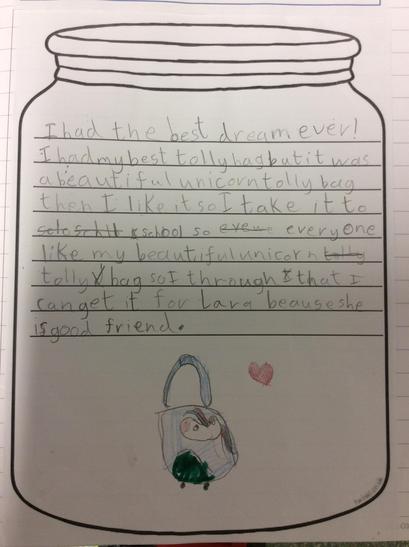 I had the best dream ever!
I had my best tolly bag but it was
a beautiful unicorn tolly bag
then I like it so I take it to
school so everyone
like my beautiful unicorn tolly
tolly bag so I through that I
can get it for Lara beause she
is good friend.